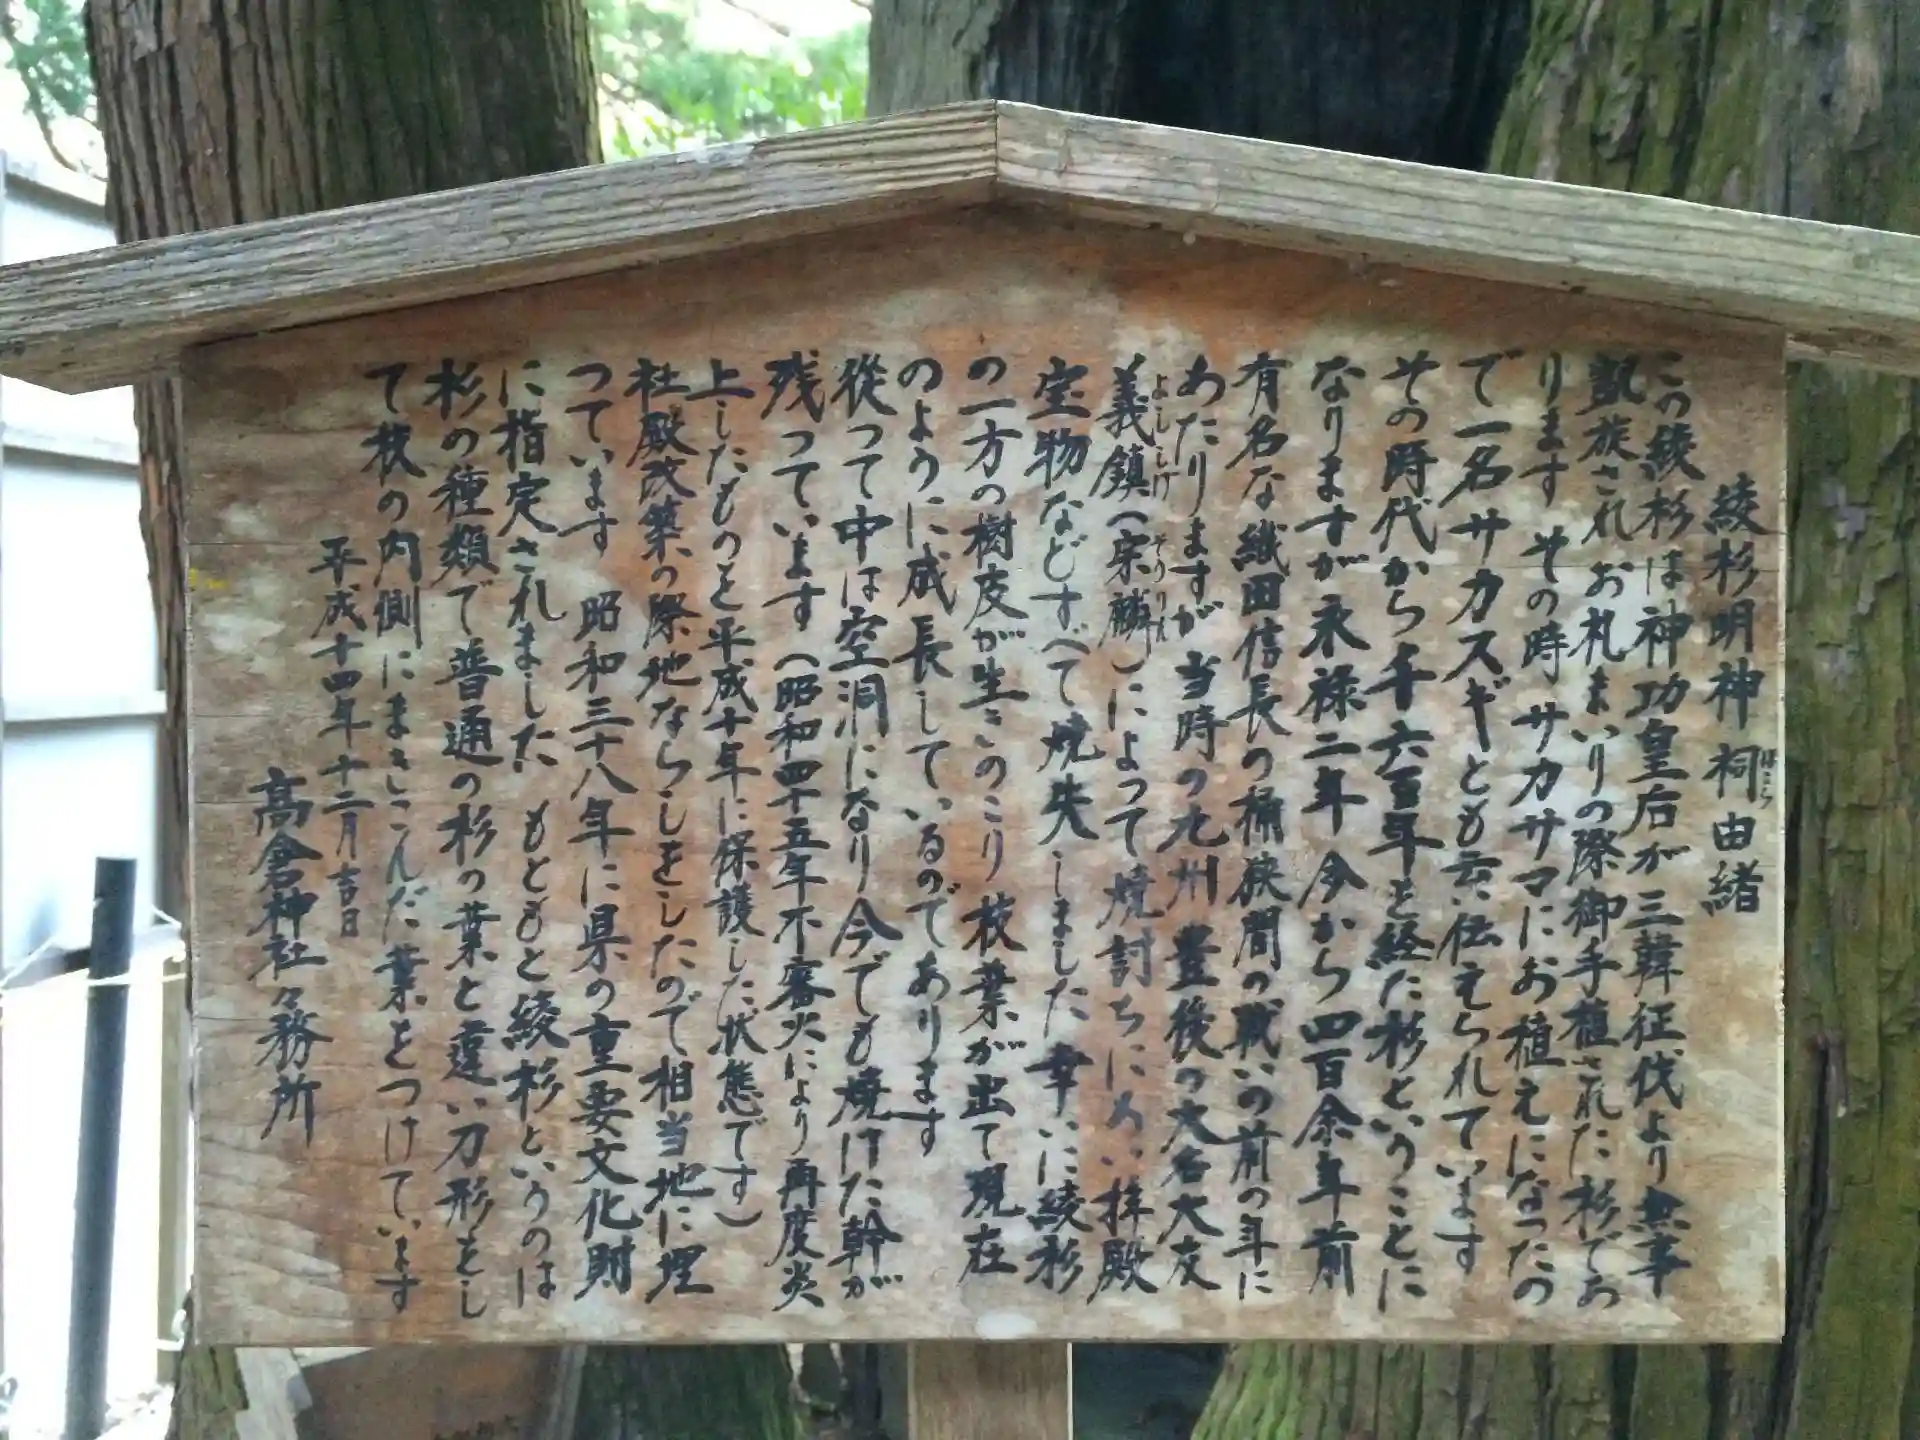 綾杉明神祠由緒
ほこら
この綾杉は神功皇后が三韓征伐より無事
凱旋されお札まいりの際御手植された杉であ
ります その時サカサマにお植えになったの
で一名サカスギとも云い伝えられています
その時代から千六百年を経た杉ということに
なりますが永禄二年今から四百余年前
有名な織田信長の桶狭間の戦いの前の年に
あたりますが当時の九州豊後の大名大友
よししげ そうりん
義鎮(宗麟)によって焼討ちにあい拝殿
宝物などすべて焼失しました幸いに綾杉
の一方の樹皮が生きのこり枝葉が出て現在
のように成長しているのであります
従って中は空洞になり今でも焼けた幹が
残っています(昭和四十五年不審火により再度炎
上したものを平成十年に保護した状態です)
社殿改築の際地ならしをしたので相当地に埋
っています 昭和三十八年に県の重要文化財
に指定されました もともと綾杉というのは
杉の種類で普通の杉の葉と違い刀形をし
て枝の内側にまきこんだ葉をつけています
平成十四年十二月吉日
高倉神社々務所